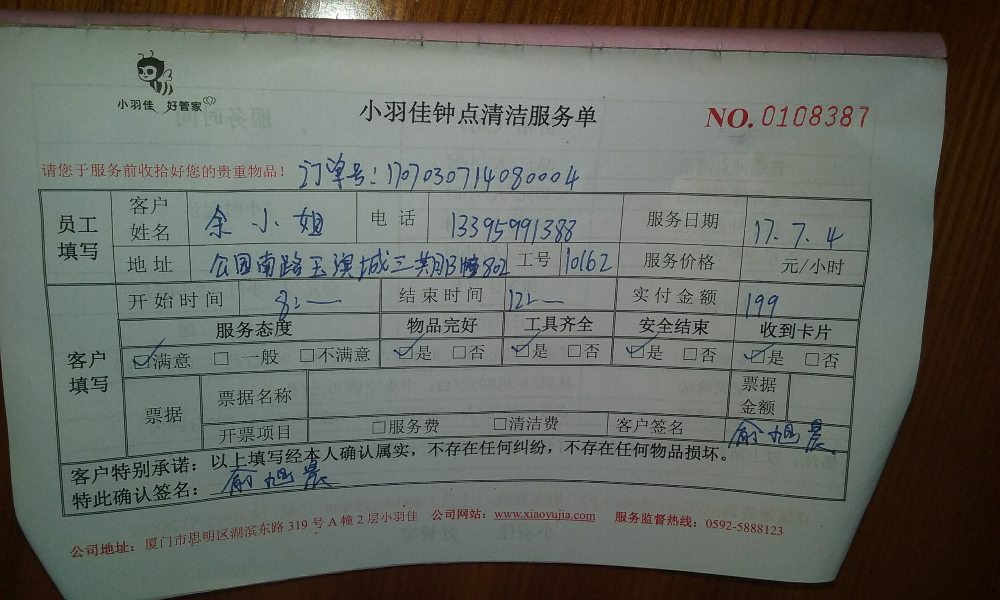 小羽佳 好管家
小羽佳钟点清洁服务单
NO. 0108387
请您于服务前收拾好您的贵重物品! 订单号: 1707030714080004
员工填写 客户姓名 余小姐 电话 13395991388 服务日期 17.7.4
地址 公园南路玉滨城三期B幢802 工号 10162 服务价格 元/小时
客户填写 开始时间 8:— 结束时间 12:— 实付金额 199
服务态度 物品完好 工具齐全 安全结束 收到卡片
☑满意 □一般 □不满意 ☑是 □否 ☑是 □否 ☑是 □否 ☑是 □否
票据 票据名称 票据金额
开票项目 □服务费 □清洁费 客户签名 俞旭晨
客户特别承诺:以上填写经本人确认属实,不存在任何纠纷,不存在任何物品损坏。
特此确认签名: 俞旭晨
公司地址:厦门市思明区湖滨东路319号A幢2层小羽佳 公司网站:www.xiaoyujia.com 服务监督热线:0592-5888123